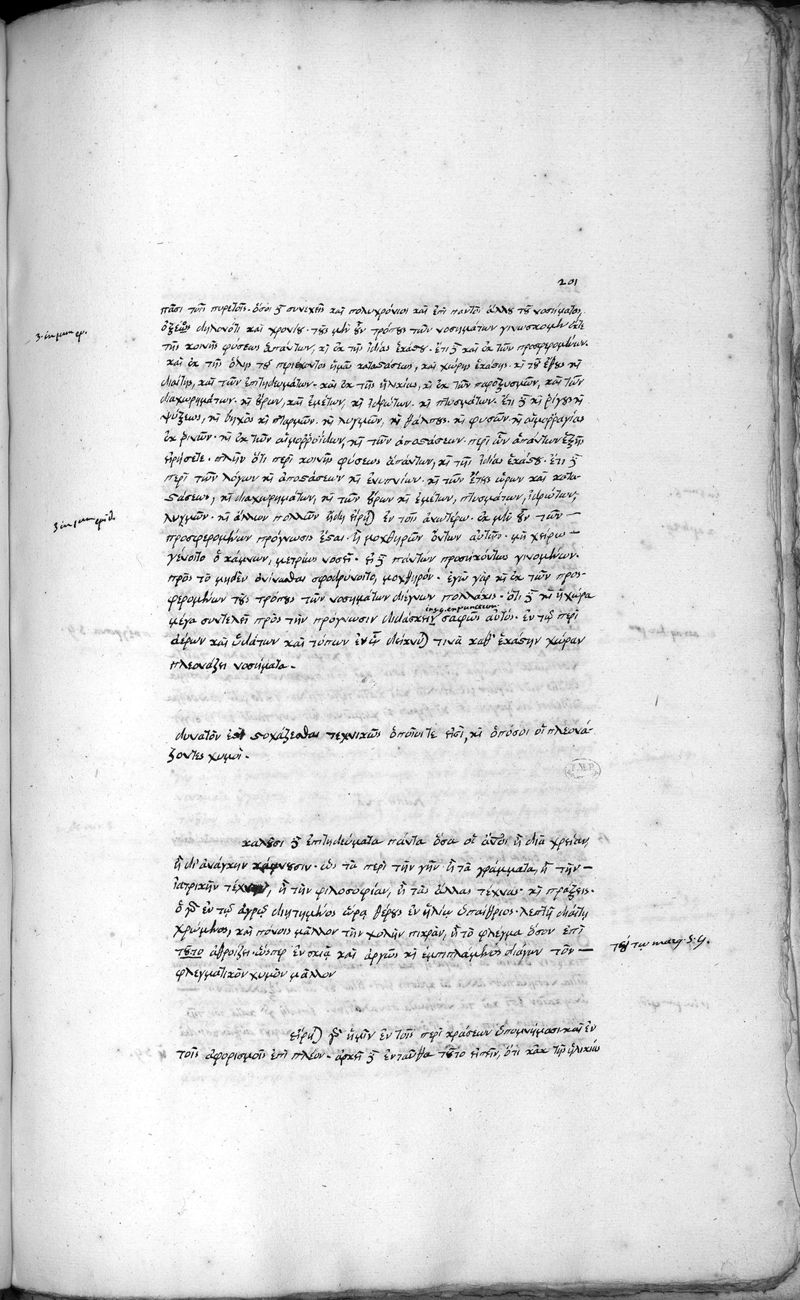 201
πᾶσι τοῖς πυρετοῖς. ὅσοι δὲ συνεχεῖς καὶ πολυχρόνιοι καὶ ἐπὶ παντὸς ἄλλου τοῦ νοσήματος
ὀξέως δηλονότι καὶ χρονίου. τοὺς μὲν οὖν τρόπους τῶν νοσημάτων γινώσκομεν ἔκ τε
3. in 1 um ep.
τῆς κοινῆς φύσεως ἁπάντων, καὶ ἐκ τῆς ἰδίας ἑκάστου. ἔτι δὲ καὶ ἐκ τῶν προσφερομένων.
καὶ ἐκ τῆς ὅλης τοῦ περιέχοντος ἡμᾶς καταστάσεως, καὶ χώρης ἑκάστης. καὶ τοῦ ἔθους καὶ
διαίτης, καὶ τῶν ἐπιτηδευμάτων. καὶ ἐκ τῆς ἡλικίας, καὶ ἐκ τῶν παροξυσμῶν, καὶ τῶν
διαχωρημάτων. καὶ οὔρων, καὶ ἐμέτων, καὶ ἱδρώτων. καὶ πτυσμάτων. ἔτι δὲ καὶ ῥίγους καὶ
ψύξεως, καὶ βηχὸς καὶ πταρμῶν. καὶ λυγμῶν, καὶ θάλπους. καὶ φυσῶν καὶ αἱμορραγίας
ἐκ ῥινῶν. καὶ ἐκ τῶν αἱμορροΐδων, καὶ τῶν ἀποστάσεων. περὶ ὧν ἁπάντων ἑξῆς
εὑρήσετε. πλὴν ὅτι περὶ κοινῆς φύσεως ἁπάντων, καὶ τῆς ἰδίας ἑκάστου. ἔτι δὲ
περὶ τῶν λόγων καὶ ἀποστάσεων καὶ ἐνυπνίων. καὶ τῶν ἔτους ὡρῶν καὶ κατα-
στάσεως, καὶ διαχωρημάτων, καὶ τῶν οὔρων καὶ ἐμέτων, πτυσμάτων, ἱδρώτων,
λυγμῶν. καὶ ἄλλων πολλῶν ἤδη εἴρηται ἐν τοῖς ἀνωτέρω. ἐκ μὲν οὖν τῶν
προσφερομένων πρόγνωσις ἔσται. εἰ μοχθηρῶν ὄντων αὐτῶν. μὴ χείρω
γένοιτο ὁ κάμνων, μετρίως νοσεῖ. εἰ δὲ πάντων προσηκόντως γινομένων.
πρὸς τὸ μηδὲν ὀνίνασθαι σφοδρύνοιτο, μοχθηρόν. ἐγὼ γὰρ καὶ ἐκ τῶν προσ-
φερομένων τοὺς τρόπους τῶν νοσημάτων διέγνων πολλάκις. ὅτι δὲ καὶ ἡ χώρα
μέγα συντελεῖ πρὸς τὴν πρόγνωσιν διδάσκει σαφῶς αὐτός. ἐν τῷ περὶ
ἀέρων καὶ ὑδάτων καὶ τόπων ἐν ᾧ δείκνυται τινὰ καθ' ἑκάστην χώραν
πλεονάζει νοσήματα.
δυνατὸν ἐστι στοχάζεσθαι τεχνικῶς ὁποῖοί τε εἰσί, καὶ ὁπόσοι οἱ πλεονά-
ζοντες χυμοί.
καλοῦσι δὲ ἐπιτηδεύματα πάντα ὅσα οἱ ἄνθρωποι ἢ διὰ χρείαν,
ἢ δι' ἀνάγκην κάμνουσιν. ὡς τὰ περὶ τὴν γῆν. ἢ τὰ γράμματα, ἢ τὴν
ἰατρικὴν τέχνην, ἢ τὴν φιλοσοφίαν, ἢ τὰς ἄλλας τέχνας. καὶ πράξεις.
ὁ γὰρ ἐν τῷ ἀγρῷ διῃτημένος ὥρᾳ θέρους ἐν ἡλίῳ ὑπαίθριος. λεπτῇ διαίτῃ
χρώμενος, καὶ πόνοις μᾶλλον τὴν χολὴν πικράν, ἢ τὸ φλέγμα ὅσον ἐπὶ
τοῦτο ἀθροίζει. ὥσπερ ἐν σκιᾷ καὶ ἀργῶς καὶ ἐμπιπλάμενος διάγων τὸν
τούτῳ marg. S. G.
φλεγματικὸν χυμὸν μᾶλλον
εἴρηται γὰρ ἡμῖν ἐν τοῖς περὶ κράσεων ὑπομνήμασι καὶ ἐν
τοῖς ἀφορισμοῖς ἐπὶ πλέον. ἀρκεῖ δὲ ἐνταῦθα τοῦτο εἰπεῖν, ὅτι κἀκ τῆς ἡλικίας